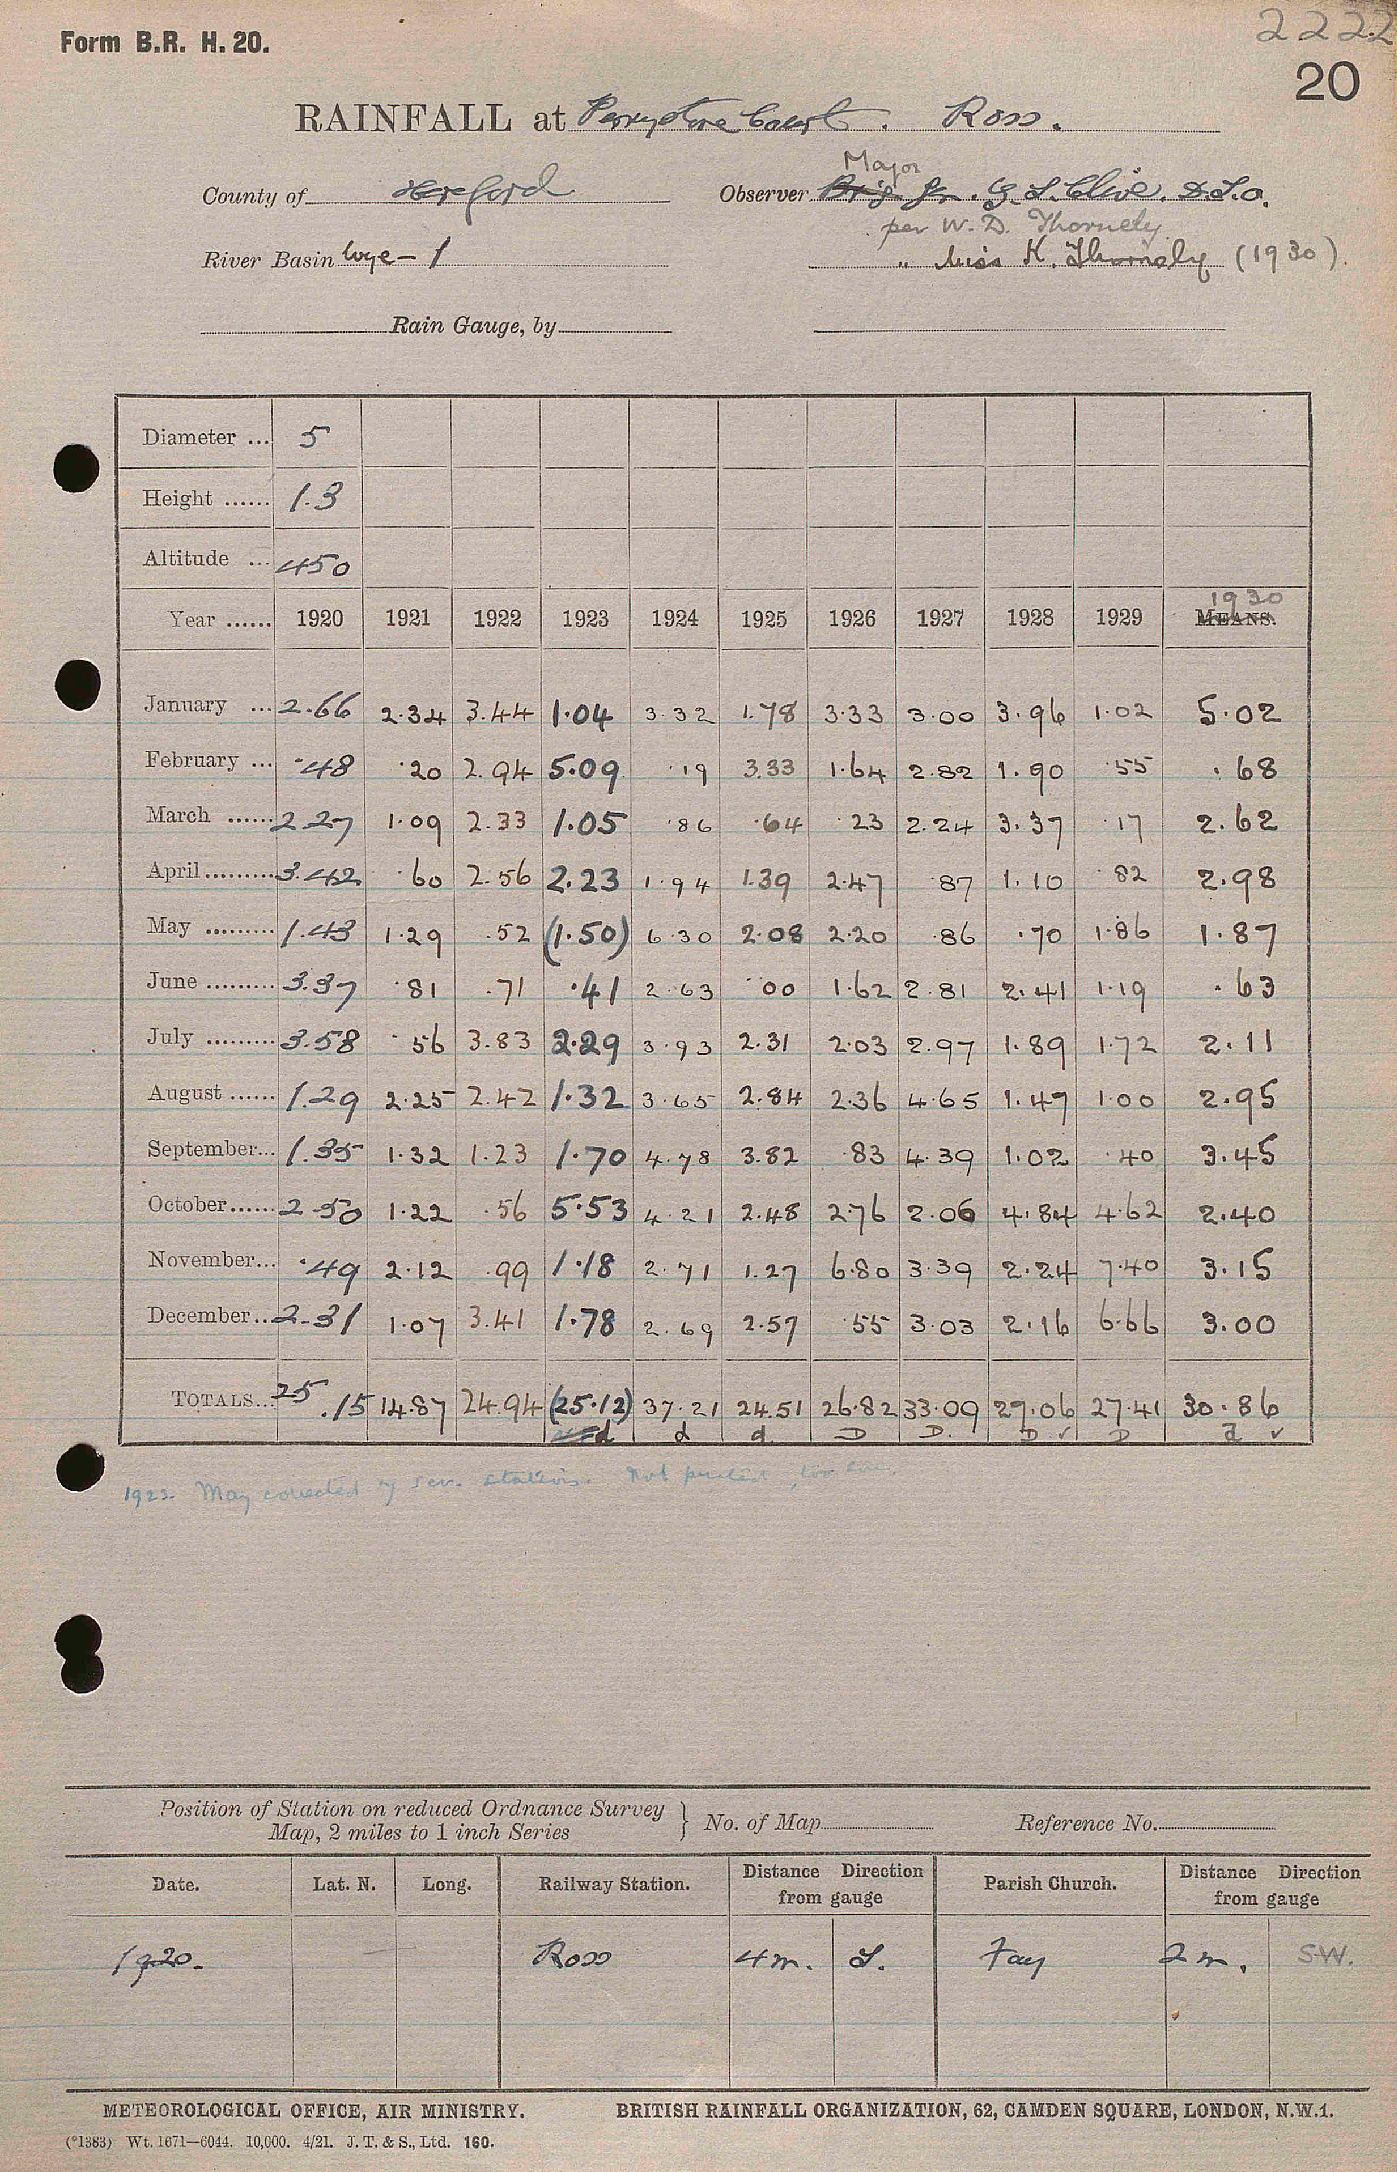 2222
Form B.R. H. 20.
20
RAINFALL at Perrystone Court. Ross.
Major
County of Hereford Observer Brig. Gn. G. S. Clive. D.S.O.
per W. D. Thornely.
River Basin Wye - 1 " Miss K. Thornely (1930).
Rain Gauge, by
Diameter ... 5
Height ...... 1.3
Altitude ... 450
1930
Year ...... 1920 1921 1922 1923 1924 1925 1926 1927 1928 1929 MEANS.
January ... 2.66 2.34 3.44 1.04 3.32 1.78 3.33 3.00 3.96 1.02 5.02
February ... .48 .20 2.94 5.09 .19 3.33 1.64 2.82 1.90 .55 .68
March ...... 2.27 1.09 2.33 1.05 .86 .64 .23 2.24 3.37 .17 2.62
April ......... 3.42 .60 2.56 2.23 1.94 1.39 2.47 .87 1.10 .82 2.98
May ......... 1.43 1.29 .52 (1.50) 6.30 2.08 2.20 .86 .70 1.86 1.87
June ......... 3.37 .81 .71 .41 2.63 .00 1.62 2.81 2.41 1.19 .63
July ......... 3.58 .56 3.83 2.29 3.93 2.31 2.03 2.97 1.89 1.72 2.11
August ...... 1.29 2.25 2.42 1.32 3.65 2.84 2.36 4.65 1.47 1.00 2.95
September... 1.35 1.32 1.23 1.70 4.78 3.82 .83 4.39 1.02 .40 3.45
October...... 2.50 1.22 .56 5.53 4.21 2.48 2.76 2.06 4.84 4.62 2.40
November... .49 2.12 .99 1.18 2.71 1.27 6.80 3.39 2.24 7.40 3.15
December... 2.31 1.07 3.41 1.78 2.69 2.57 .55 3.03 2.16 6.66 3.00
TOTALS... 25.15 14.87 24.94 (25.12) 37.21 24.51 26.82 33.09 29.06 27.41 30.86
d d d D D. D v D d v
May corrected by scr. stations. Not printed, too low.
Position of Station on reduced Ordnance Survey
Map, 2 miles to 1 inch Series } No. of Map Reference No.
Date. Lat. N. Long. Railway Station. Distance Direction from gauge Parish Church. Distance Direction from gauge
1920. Ross 4 m. S. Foy 2 m. SW.
METEOROLOGICAL OFFICE, AIR MINISTRY. BRITISH RAINFALL ORGANIZATION, 62, CAMDEN SQUARE, LONDON, N.W.1.
(*1383) Wt. 1671—6044. 10,000. 4/21. J. T. & S., Ltd. 160.